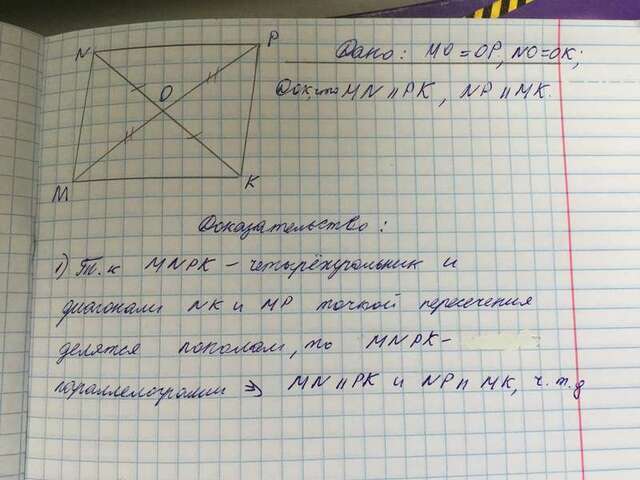 N
P
O
M
K
Дано: MO = OP, NO = OK;
Док, что MN || PK, NP || MK.
Доказательство:
1) Т.к MNPK - четырёхугольник и
диагонали NK и MP точкой пересечения
делятся пополам, то MNPK -
параллелограмм ⇒ MN || PK и NP || MK, ч.т.д